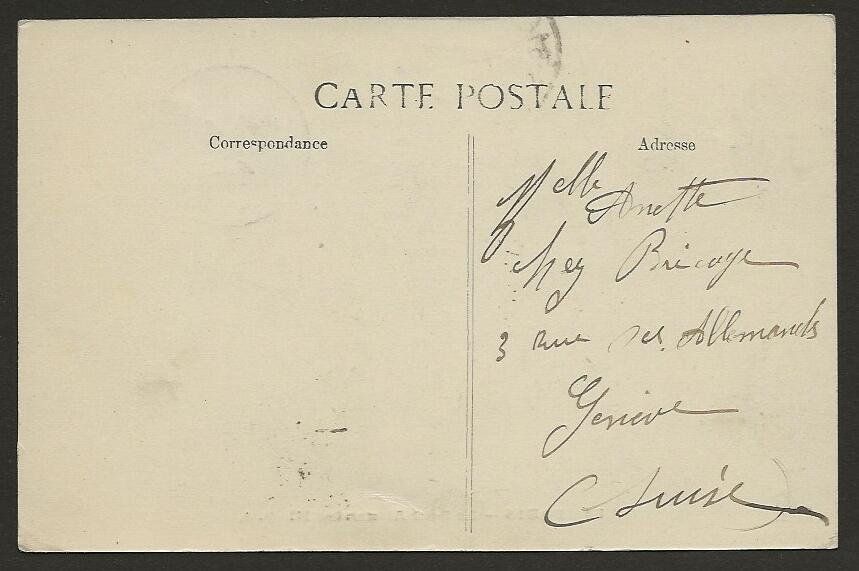 CARTE POSTALE
Correspondance
Adresse
Melle Anette
chez Bricage
3 rue des Allemands
Genève
(Suisse)